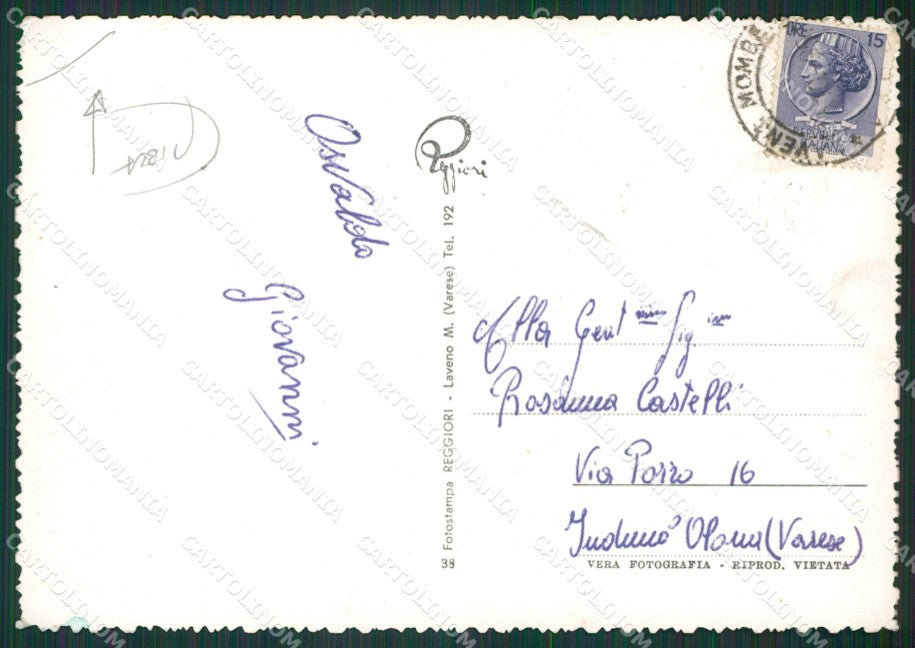 Osvaldo
Giovanni
Reggiori
38 Fotostampa REGGIORI - Laveno M. (Varese) Tel. 192
LIRE 15
REPVBBLICA
ITALIANA
LAVENO MOMBE
Alla Gent ma Sig na
Rosanna Castelli
Via Porro 16
Induno Olona (Varese)
VERA FOTOGRAFIA - RIPROD. VIETATA
CARTOLINOMANIA